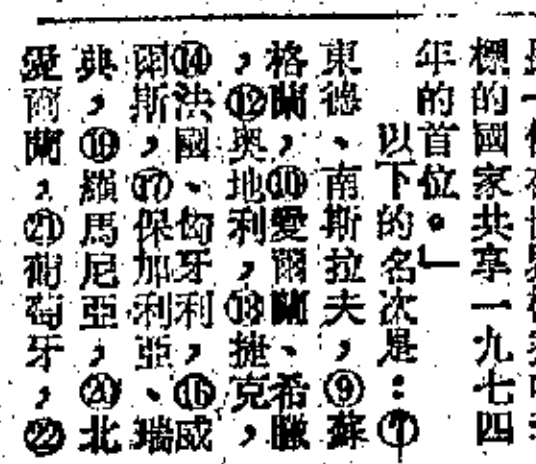 標的國家共享一九七四
年的首位。」
以下的名次是：⑦
東德、南斯拉夫，⑨蘇
格蘭，⑩愛爾蘭、希臘
，⑫奧地利，⑬捷克，
⑭法國、匈牙利，⑯威
爾斯，⑰保加利亞、瑞
典，⑲羅馬尼亞，⑳北
愛爾蘭，㉑葡萄牙，㉒